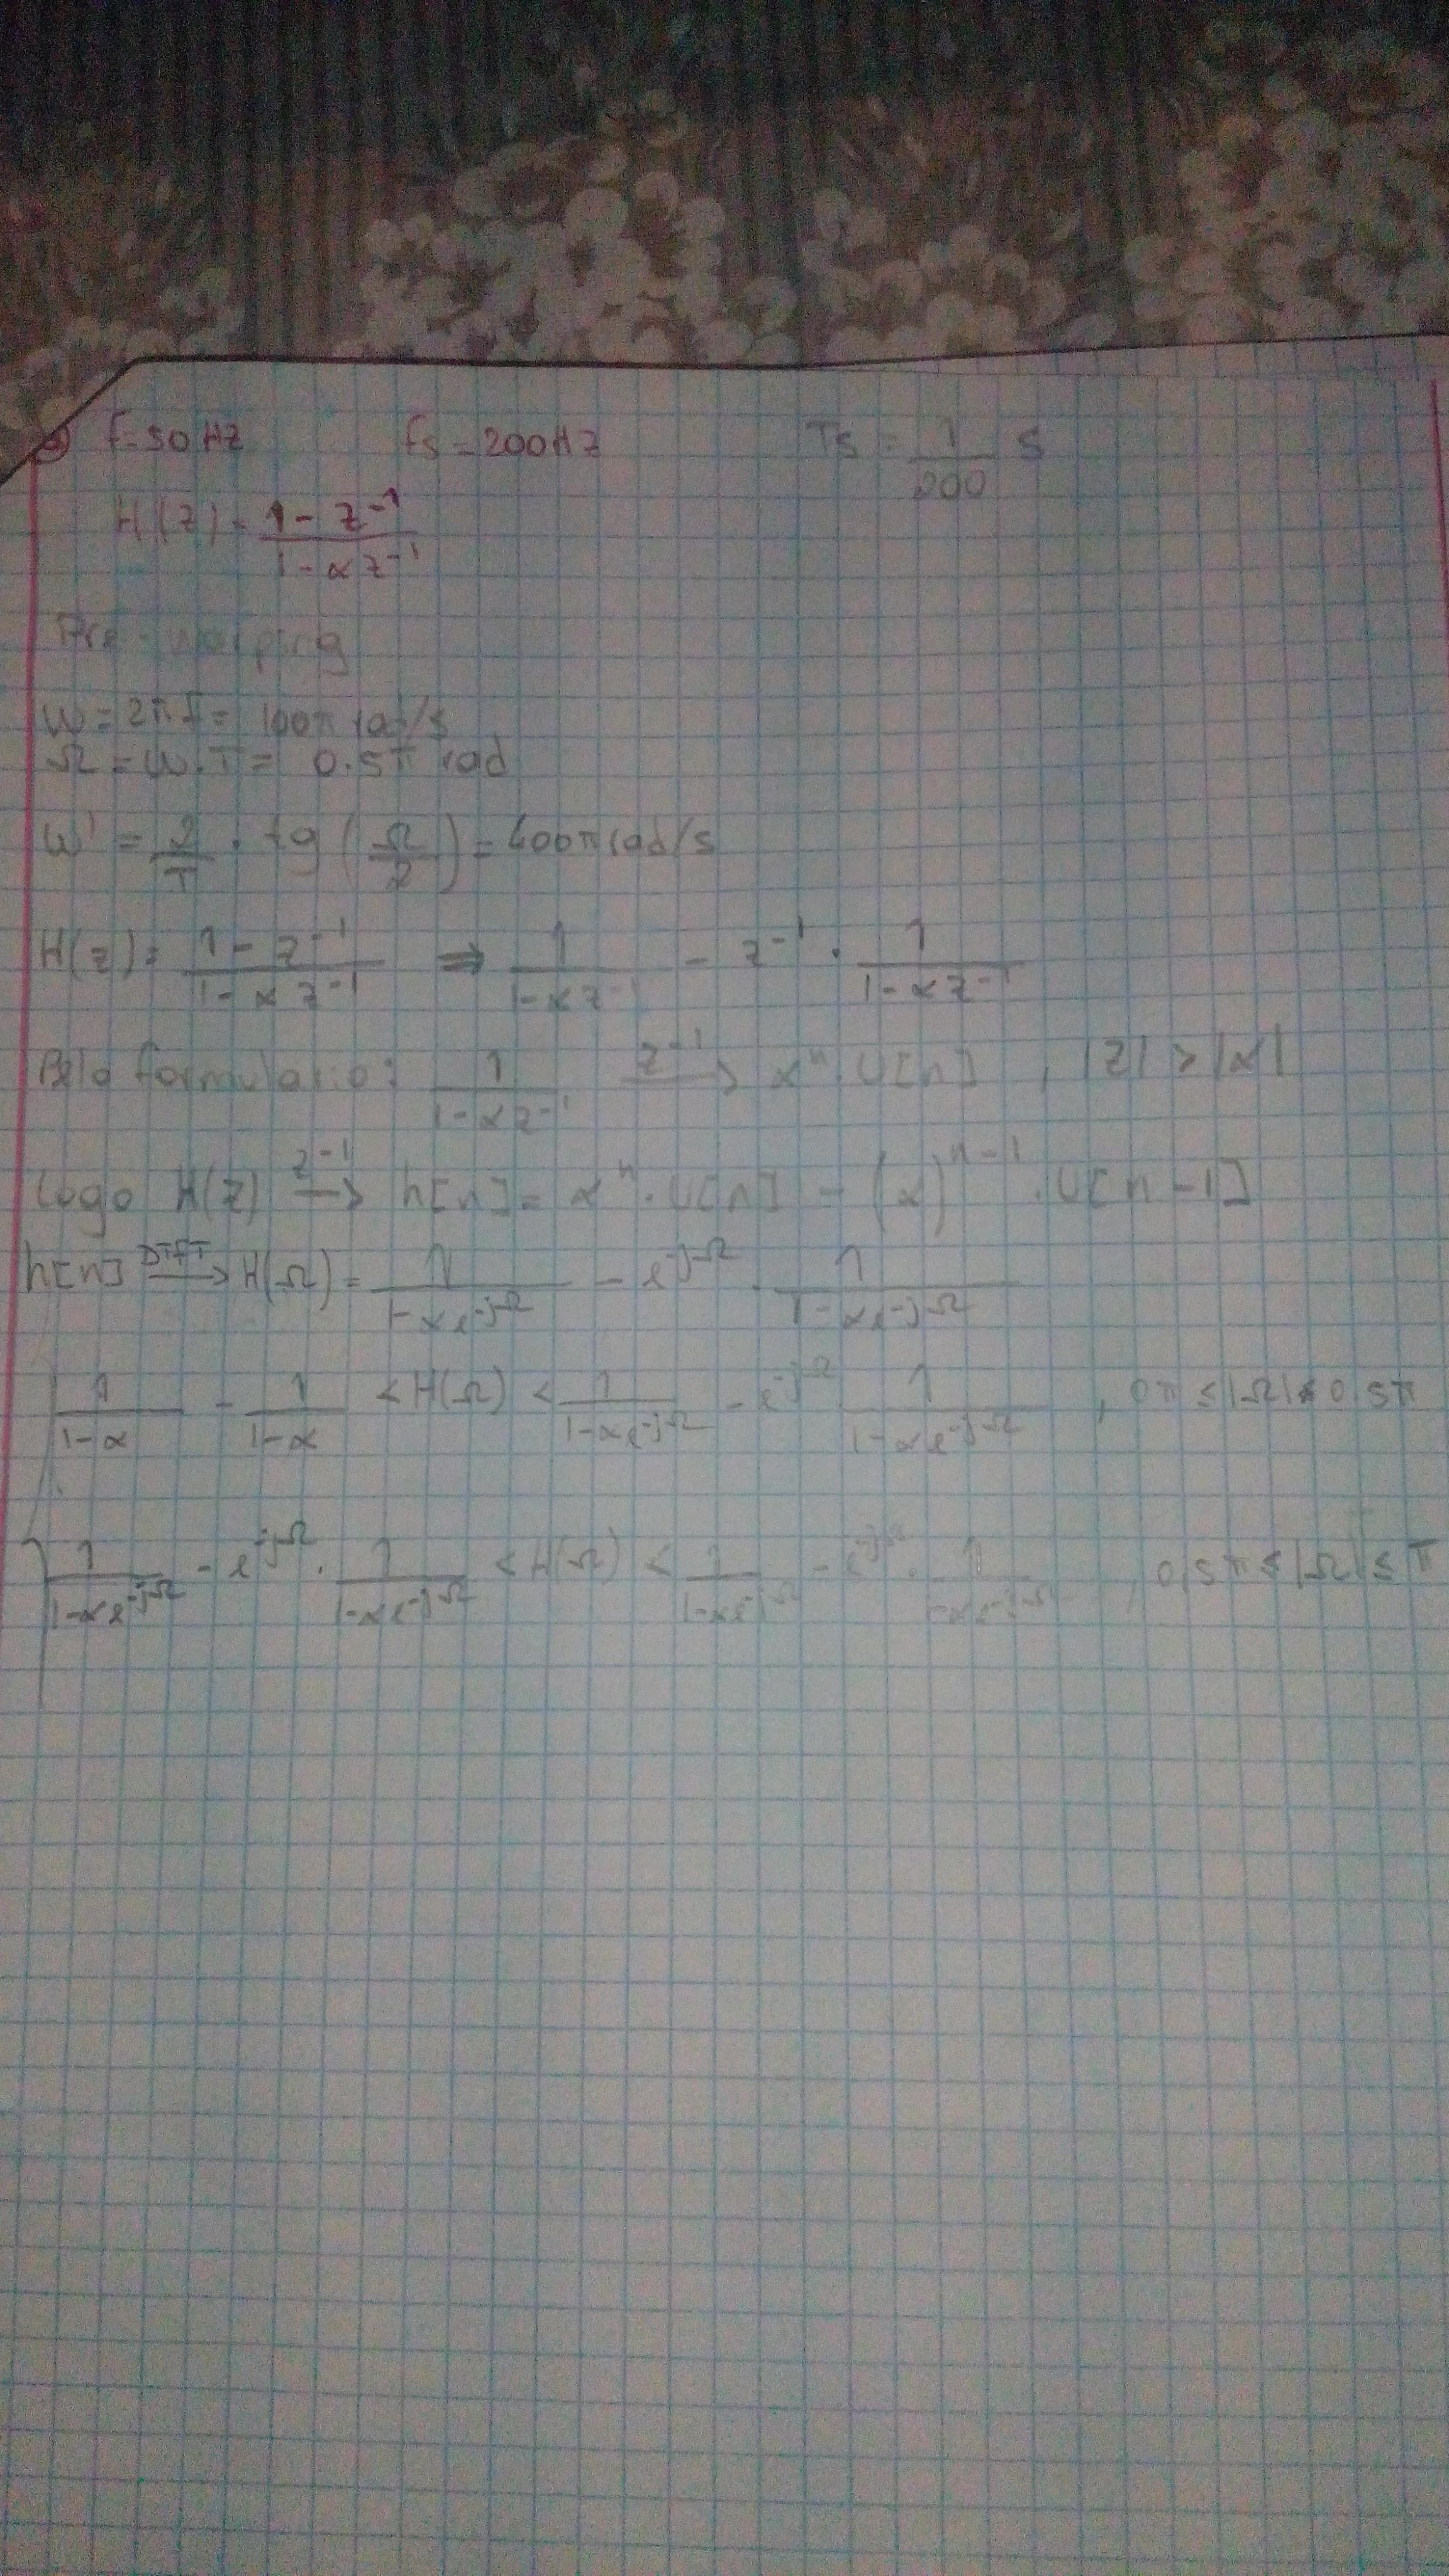 f=50Hz fs=200Hz Ts = 1/200 s
H(z) = (1 - z^-1)/(1 - αz^-1)
Pre-warping
W = 2πf = 100π rad/s
Ω = W.T = 0.5π rad
W' = 2/T . tg(Ω/2) = 400π rad/s
H(z) = (1 - z^-1)/(1 - αz^-1) ⇒ 1/(1 - αz^-1) - z^-1 . 1/(1 - αz^-1)
Pelo formulario: 1/(1 - αz^-1) z^-1→ α^n . U[n] , |z| > |α|
Logo H(z) z^-1→ h[n] = α^n . U[n] - (α)^n-1 . U[n-1]
h[n] DTFT→ H(Ω) = 1/(1 - αe^-jΩ) - e^-jΩ . 1/(1 - αe^-jΩ)
1/(1-α) - 1/(1-α) < H(Ω) < 1/(1-αe^-jΩ) - e^-jΩ 1/(1-αe^-jΩ) , 0π ≤ |Ω| < 0,5π
1/(1-αe^-jΩ) - e^-jΩ . 1/(1-αe^-jΩ) < H(Ω) < 1/(1-αe^-jΩ) - e^-jΩ . 1/(1-αe^-jΩ) , 0,5π ≤ |Ω| ≤ π